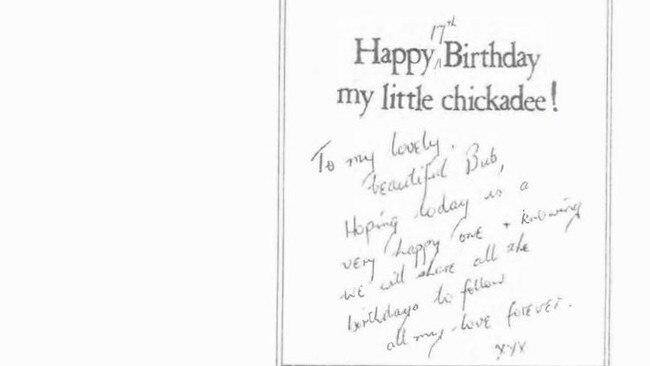 17th
Happy ^ Birthday
my little chickadee!
To my lovely,
beautiful Bub,
Hoping today is a
very happy one + knowing
we will share all the
birthdays to follow
all my love forever.
xxx